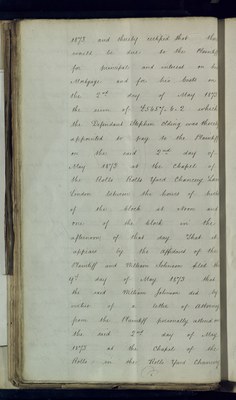 1873 and thereby certified that the
would be due to the Plaintiff
for principal and interest on his
Mortgage and for his Costs on
the 2nd day of May 1873
the sum of which
the Defendant Stephen was thereby
appointed to pay to the Plaintiff
on the said 2nd day of
May 1873 at the Chapel of
the Rolls Rolls Yard Chancery Lane
London between the hours of
of the clock at noon and
one of the clock in the
afternoon of that day. That it
appears by the Affidavit of the
Plaintiff and William Johnson filed the
day of May 1873 that
the said William Johnson did by
virtue of a letter of Attorney
from the Plaintiff personally attend on
the said 2nd day of May
1873 at the Chapel of the
Rolls in the Rolls Yard Chancery